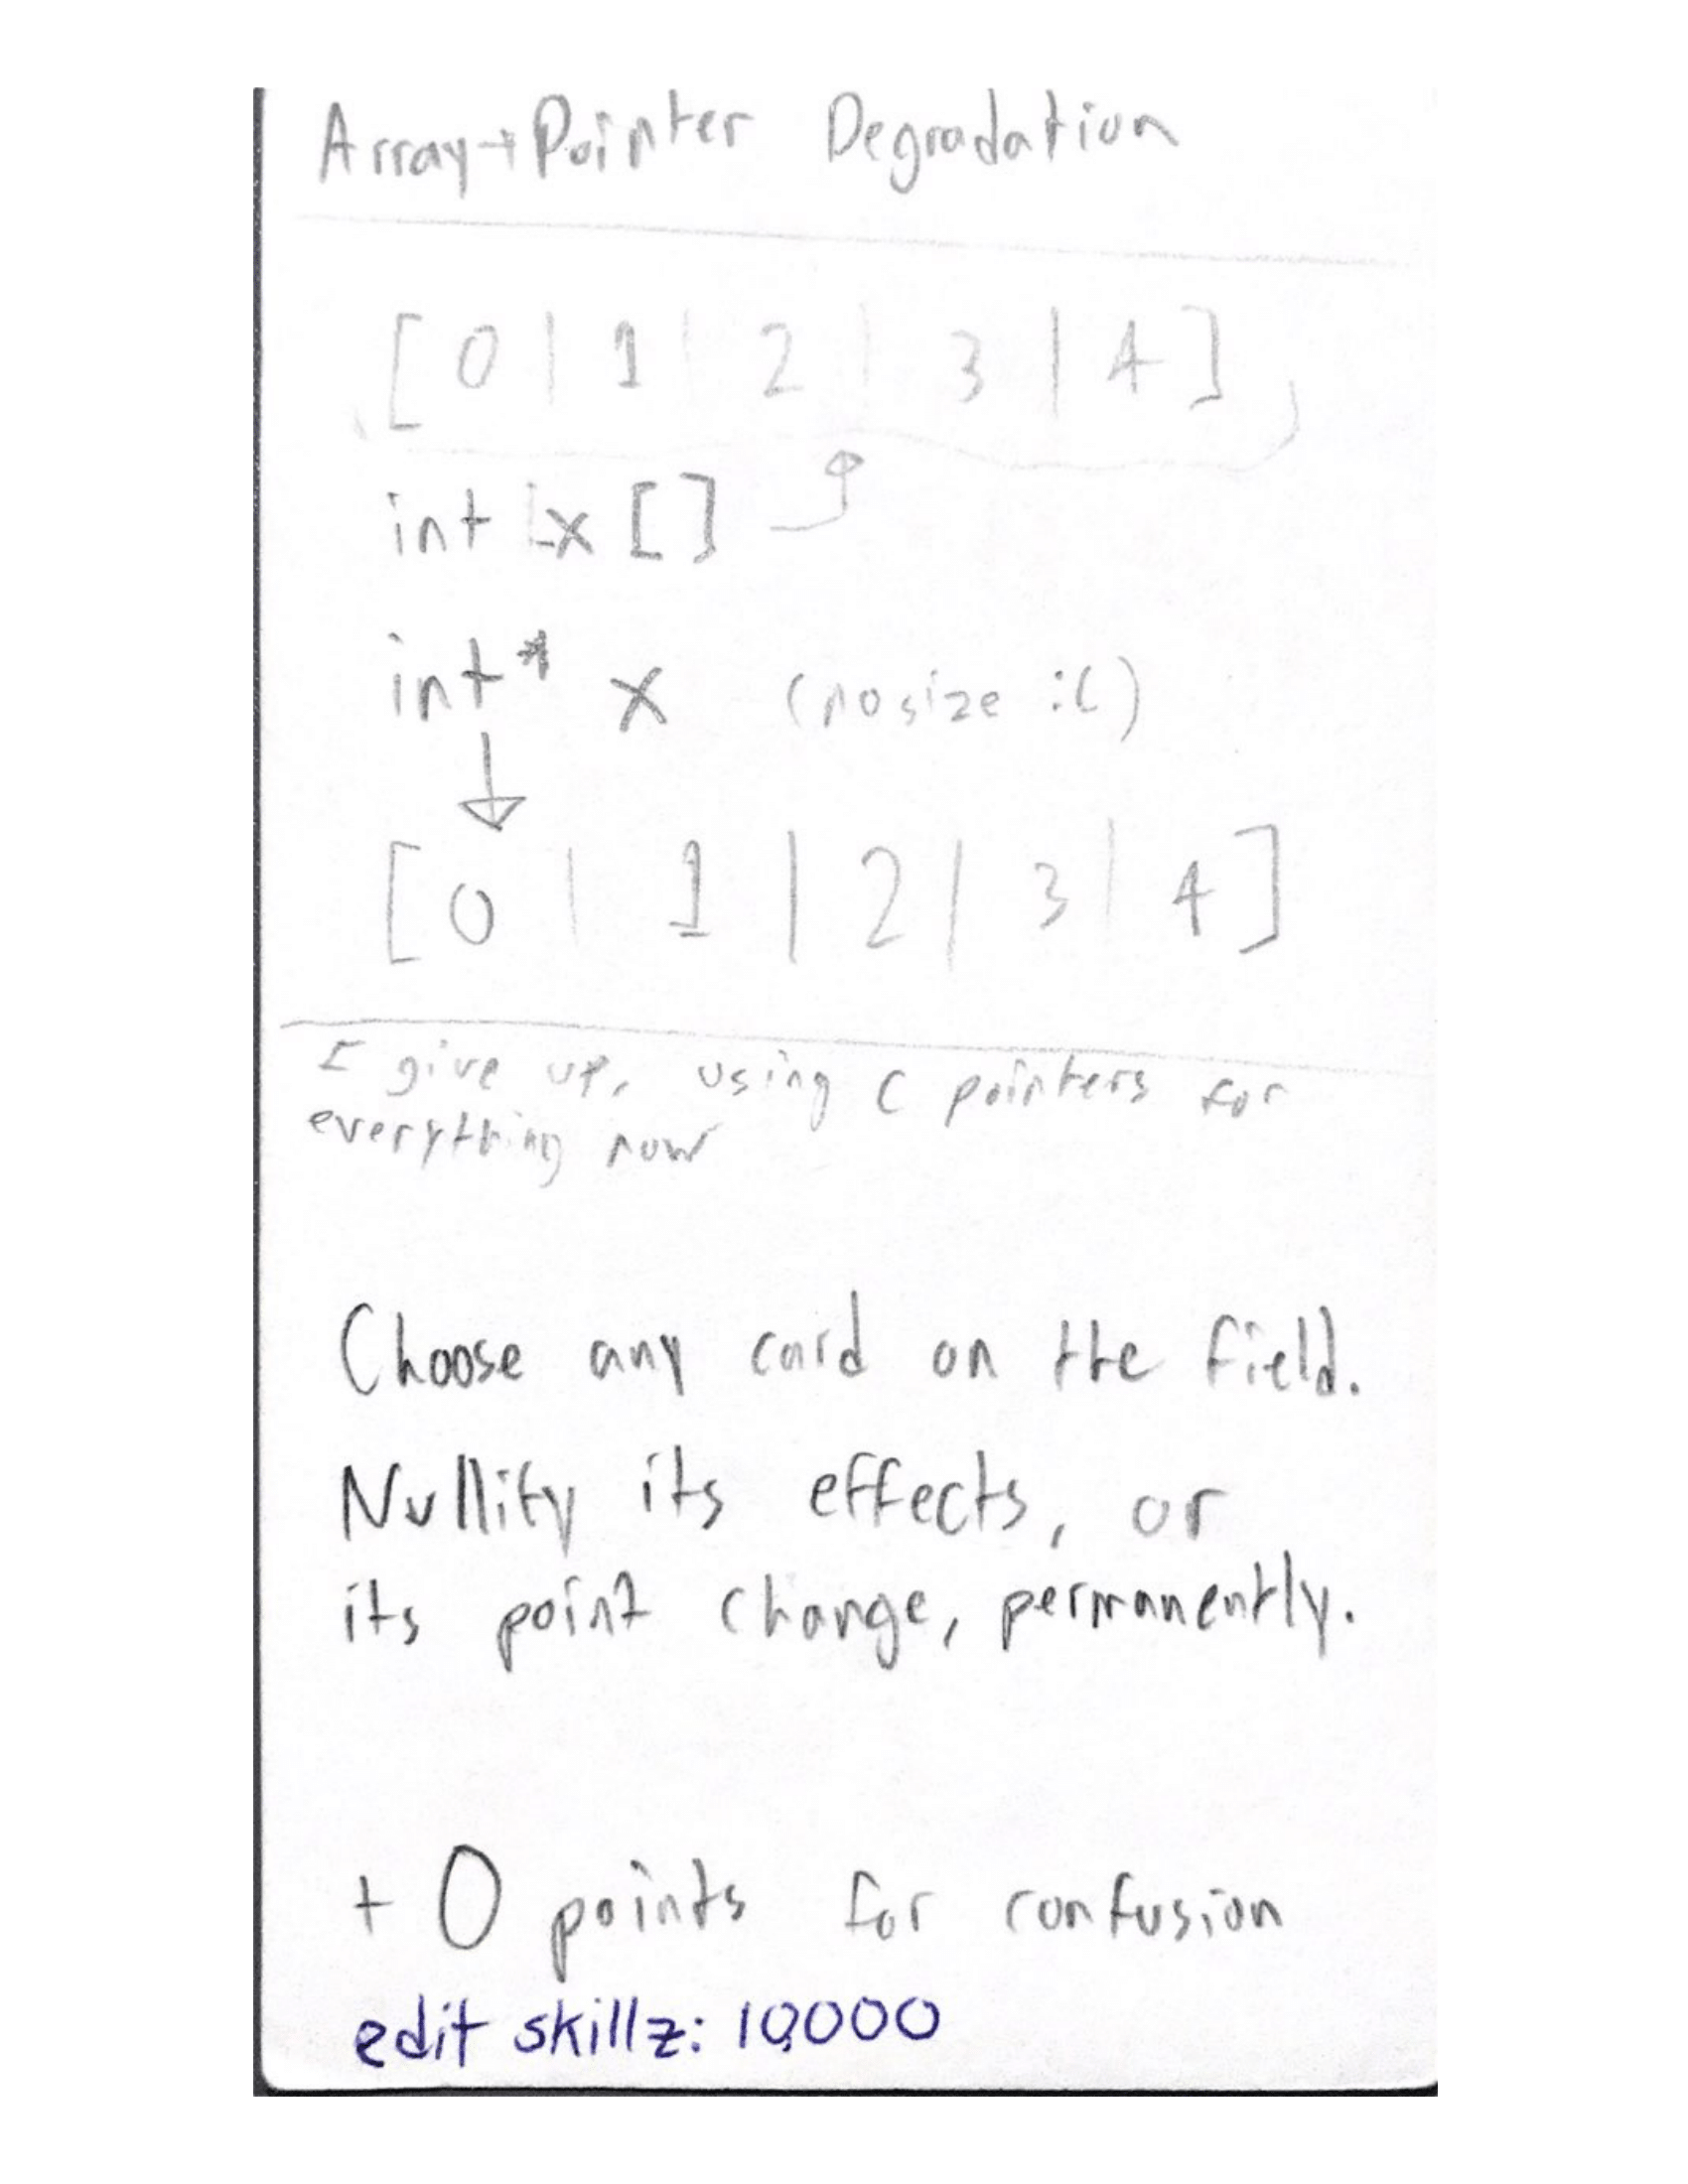 Array→Pointer Degradation
[ 0 | 1 | 2 | 3 | 4 ]
int x []
int* x (no size :()
[ 0 | 1 | 2 | 3 | 4 ]
I give up, using C pointers for
everything now
Choose any card on the field.
Nullify its effects, or
its point change, permanently.
+ 0 points for confusion
edit skillz: 10,000